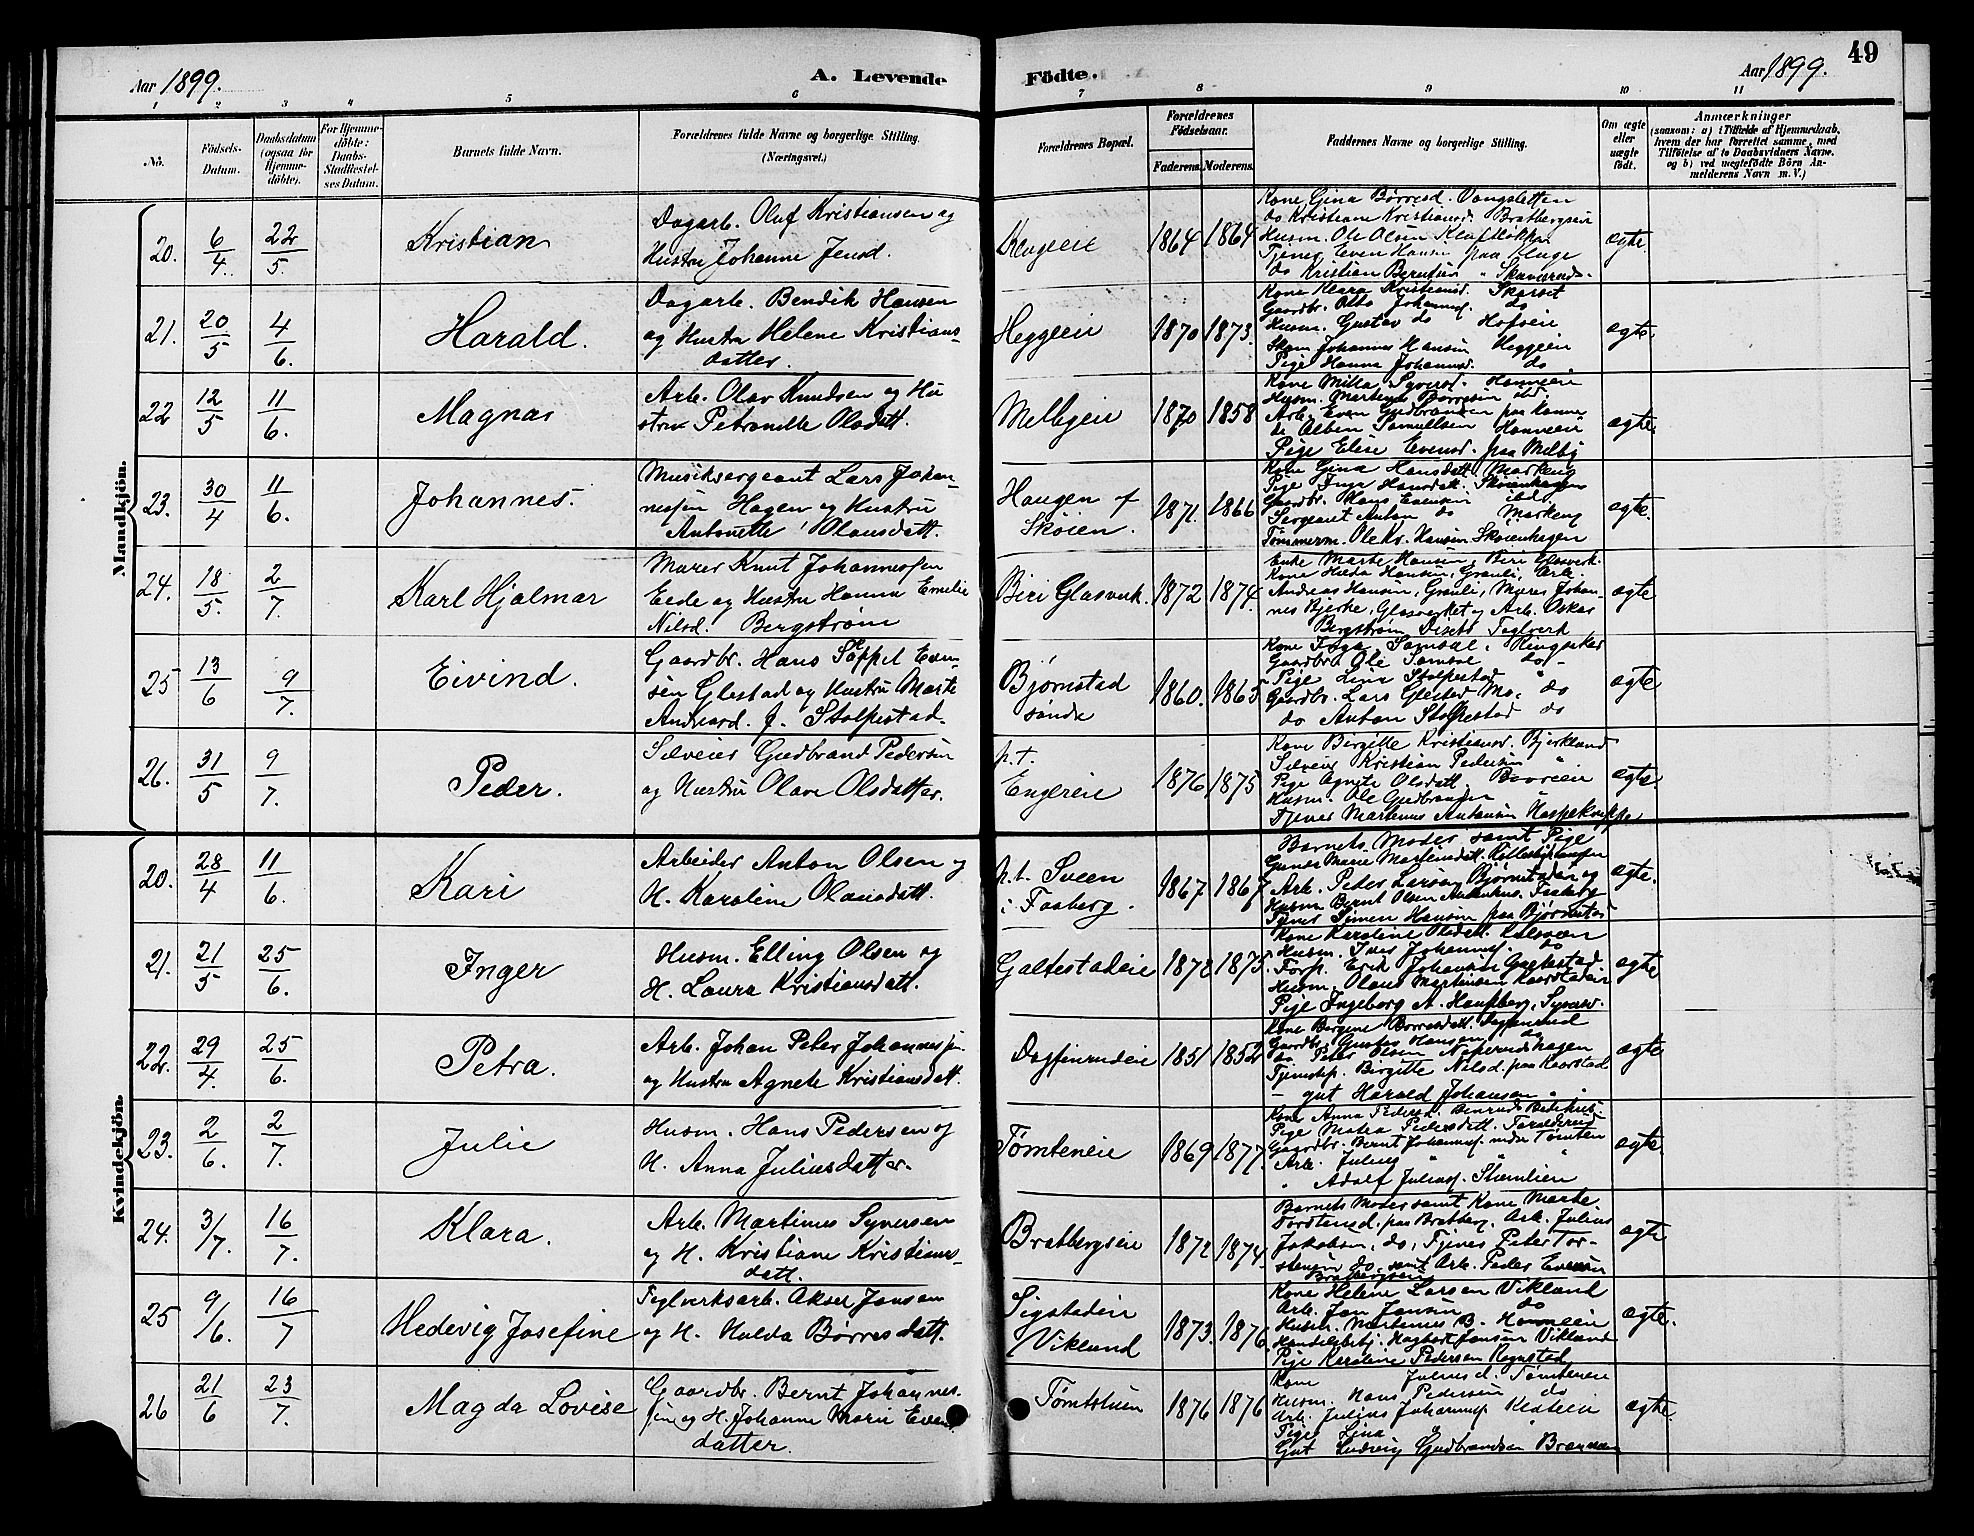 Aar 1899.
A. Levende
Födte.
Aar 1899.
49
1 2 3 4 5 6 7 8 9 10 11
No.
Födsels-
Datum.
Daabsdatum
(ogsaa for
Hjemme-
döbte).
For Hjemme-
döbte:
Daabs-
Stadfæstel-
ses Datum.
Barnets fulde Navn.
Forældrenes fulde Navne og borgerlige Stilling.
(Næringsvei.)
Forældrenes Bopæl.
Forældrenes
Födselsaar.
Faderens. Moderens.
Faddernes Navne og borgerlige Stilling.
Om ægte
eller
uægte
födt.
Anmærkninger
(saasom: a) i Tilfælde af Hjemmedaab,
hvem der har forrettet samme, med
Tilföielse af to Daabsvidners Navne.
og b) ved uægtefödte Börn An-
melderens Navn m. V.)
Mandkjön.
20. 6/4 22/5. Kristian
Dagarb. Oluf Kristiansen og
Hustru Johanne Jensd.
Klugeeie 1864 1864
Kone Gina Børresd. Vangsletten
do Kristiane Kristiansd. Bratbergseie
Husm. Ole Olsen Klufløkken
Tjener Even Hansen paa Kluge
do Kristian Berntsen
ægte
21. 20/5 4/6. Harald.
Dagarb. Bendik Hansen
og Hustru Helene Kristians-
datter.
Heggeeie 1870 1873.
Kone Klara Kristiansd. Skarset
Gaardbr. Otto Johannes. do
Husm. Gustav do Hofseie
Skom Johannes Hansen Heggeeie
Pige Hanna Johannesd. do
ægte
22 12/5 11/6. Magnas
Arb. Olav Knudsen og Hu
stru Petronelle Olsdatt.
Melbyeie 1870 1858
Kone Milla Syversd. Honneeie
Husm. Martenus Børresen ibd.
Arb. Even Gudbrandsen paa Honne
do Alben Samuelsen Honneeie
Pige Elise Evensd. paa Melby
ægte.
23. 30/4 11/6. Johannes.
Musiksergeant Lars Johan-
nessen Hagen og Hustru
Antonette Olausdatt.
Haugen af
Skøien. 1871. 1866
Kone Gina Hansdatt. Markeng
Pige Inga Hansdatt. Skøienhagen
Gaardbr. Hans Evensen ibd
Sergeant Anton do Markeng
Tømmerm. Ole Kr. Hansen Skøienhagen
ægte.
24. 18/5. 2/7. Karl Hjalmar
Murer Knut Johannessen
Eede og Hustru Hanna Emelie
Nilsd. Bergstrøm
Biri Glasverk. 1872 1874.
Enke Marte Hansen, Biri Glasverk.
Kone Hilda Hansen, Granli, Arb.
Andreas Hansen, Granli, Murer Johan-
nes Bjerke, Glasverket og Arb. Oskar
Bergstrøm Diseth Teglverk
ægte
25 13/6 9/7. Eivind.
Gaardbr. Hans Sappel Even-
sen Glestad og Hustru Marte
Andreasd. f. Stolpestad.
Bjørnstad
søndre 1860. 1865
Kone Inga Samdal i Ringsaker
Gaardbr. Ole Samdal do
Pige Lina Stolpestad
Gaardbr. Lars Glestad Mo, do
do Anton Stolpestad do
ægte
26. 31/5 9/7. Peder.
Selveier Gudbrand Pedersen
og Hustru Olave Olsdatter.
p.t.
Engereie 1876 1875
Kone Birgitte Kristiansd. Bjerkland
Selveier Kristian Pedersen "
Pige Agnete Olsdatt.
Husm. Ole Gudbrandsen
Tjener Martenus Antonsen
ægte.
Kvindekjön.
20. 28/4 11/6. Kari
Arbeider Anton Olsen og
H. Karoline Olausdatt.
p.t. Sveen
i Faaberg. 1867. 1867
Barnets Moder samt Pige
Arb. Peter Larsen Bjørnstaden og
Husm. Bernt Olsen Faaberg
Tjener Simen Hansen paa Bjørnstad
ægte.
21. 21/5 25/6. Inger
Husm. Elling Olsen og
H. Laura Kristiansdatt.
Galtestadeie 1872 1875.
Kone Karoline Olsdatt.
Husm. Iver Johannes. do
Forp. Erik Johansen Galtestad
Husm. Olaus Martinsen Kaarstadeie
Pige Ingeborg A. Haugberg,
ægte
22. 29/4. 25/6. Petra.
Arb. Johan Peter Johannessen
og Hustru Agnete Kristiansdatt.
Dagfinrudeie 1851 1852
Kone Bergine Børresdatt. Dagfinrud
Gaardbr. Gustav Hansen do
do Peter Olsen Nøperudshagen
Tjenestep. Birgitte Nilsd. paa Kaarstad
– gut Harald Johansen "
ægte
23. 2/6. 2/7. Julie
Husm. Hans Pedersen og
H. Anna Juliusdatter.
Tømteneie 1869 1877.
Kone Anna Pedersd.
Pige Matea Pedersdatt.
Gaardbr. Bernt Johannes. nedre Tømten
Arb. Julius " " "
" Adolf Juliuss.
ægte.
24. 3/7. 16/7. Klara.
Arb. Martinus Syversen
og H. Kristiane Kristians-
datt.
Bratbergseie 1872 1874.
Barnets Moder samt Kone Marte
Torstensd. paa Bratberg. Arb. Julius
Jakobsen, do, Tjener Peter Tor-
stensen do, samt Arb. Peder Evensen
Bratbergseie
ægte
25 9/6. 16/7 Hedevig Josefine
Teglverksarb. Aksel Jansen
og H. Hulda Børresdatt.
Sigstadeie
Viklund 1873. 1876.
Kone Helene Larsen Viklund
Arb. Jan Jansen do
Husm. Martenus B. Honneeie
Handelsbetj. Hagbart Jansen Viklund
Pige Karoline Pedersen Rognstad
ægte.
26 21/6 23/7. Magda Lovise
Gaardbr. Bernt Johannes-
sen og H. Johanne Marie Evens
datter.
Tømtstuen 1876 1876
Kone Juliusd. Tømteneie
Husm. Hans Pedersen do
Arb. Julius Johannes.
Pige Lina "
Gut Ludvig Gudbrandsen
ægte.